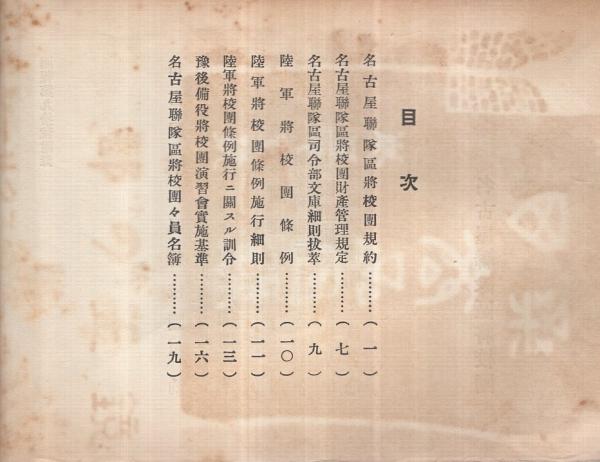 目次
名古屋聯隊區將校團規約…………(一)
名古屋聯隊區將校團財產管理規定…………(七)
名古屋聯隊區司令部文庫細則拔萃…………(九)
陸軍將校團條例…………(一〇)
陸軍將校團條例施行細則…………(一一)
陸軍將校團條例施行ニ關スル訓令…………(一三)
豫後備役將校團演習會實施基準…………(一六)
名古屋聯隊區將校團々員名簿…………(一九)